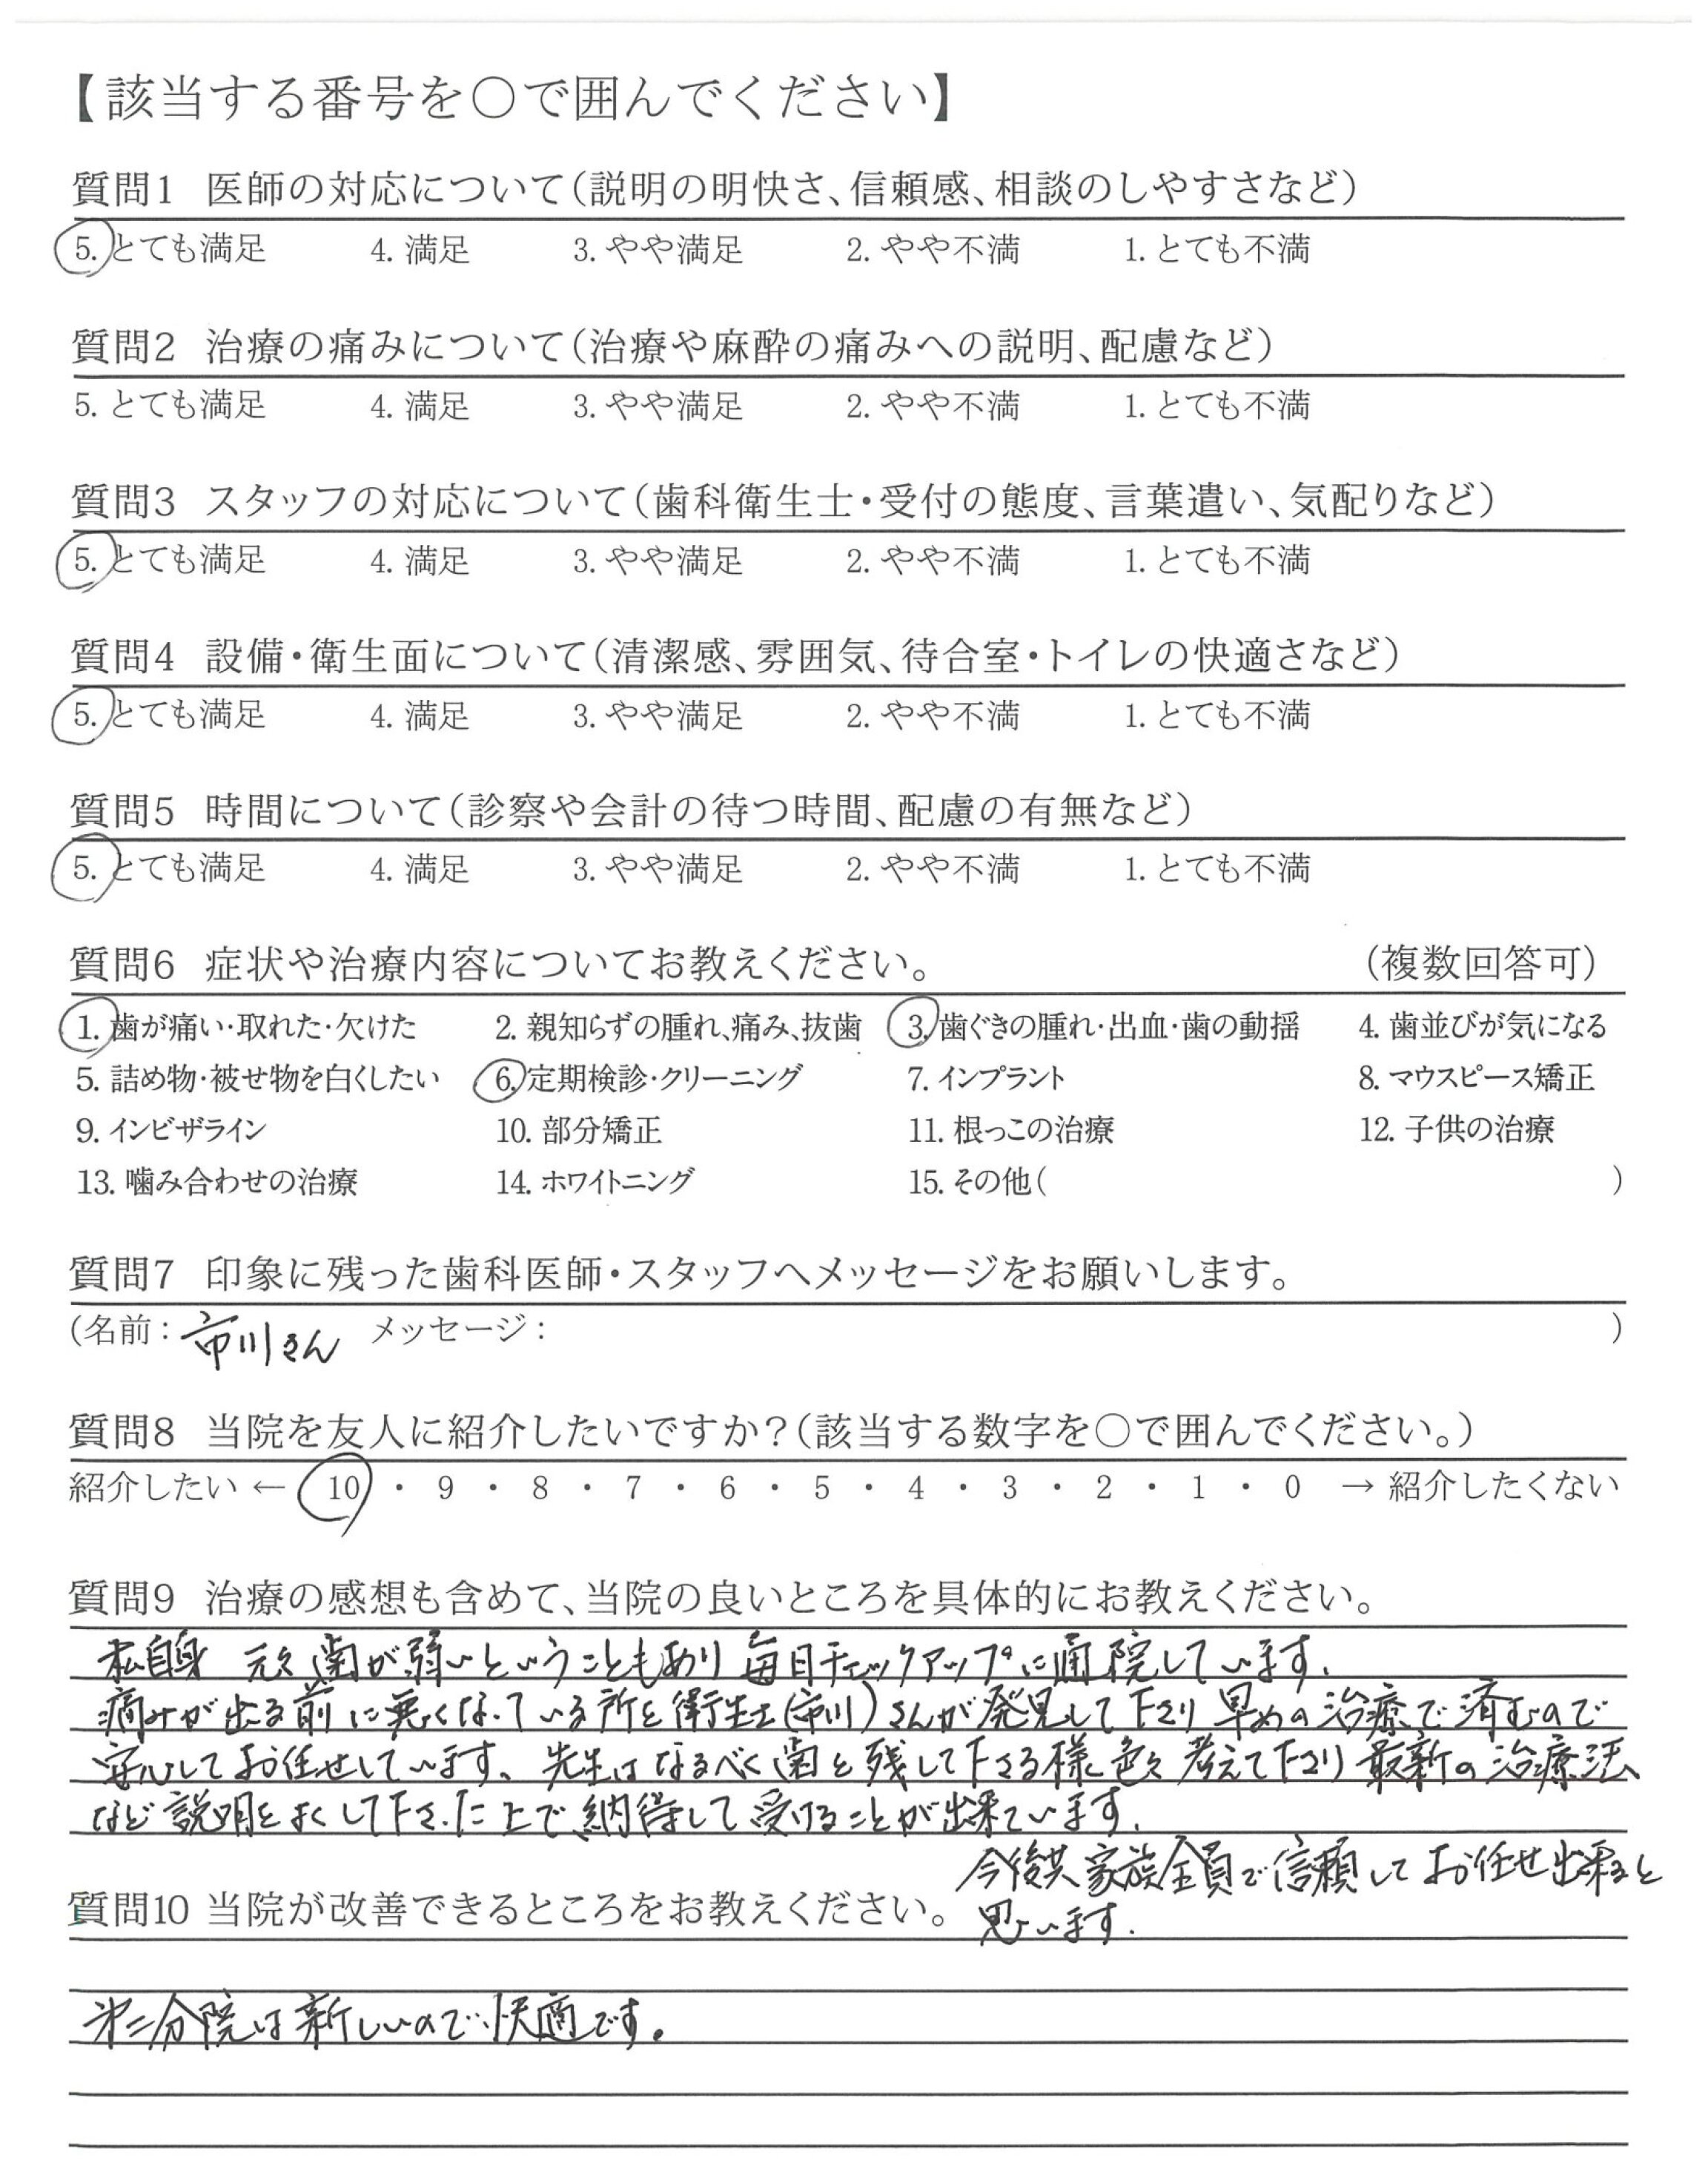 【該当する番号を○で囲んでください】
質問1 医師の対応について(説明の明快さ、信頼感、相談のしやすさなど)
5. とても満足 4. 満足 3. やや満足 2. やや不満 1. とても不満
質問2 治療の痛みについて(治療や麻酔の痛みへの説明、配慮など)
5. とても満足 4. 満足 3. やや満足 2. やや不満 1. とても不満
質問3 スタッフの対応について(歯科衛生士・受付の態度、言葉遣い、気配りなど)
5. とても満足 4. 満足 3. やや満足 2. やや不満 1. とても不満
質問4 設備・衛生面について(清潔感、雰囲気、待合室・トイレの快適さなど)
5. とても満足 4. 満足 3. やや満足 2. やや不満 1. とても不満
質問5 時間について(診察や会計の待つ時間、配慮の有無など)
5. とても満足 4. 満足 3. やや満足 2. やや不満 1. とても不満
質問6 症状や治療内容についてお教えください。 (複数回答可)
1. 歯が痛い・取れた・欠けた 2. 親知らずの腫れ、痛み、抜歯 3. 歯ぐきの腫れ・出血・歯の動揺 4. 歯並びが気になる
5. 詰め物・被せ物を白くしたい 6. 定期検診・クリーニング 7. インプラント 8. マウスピース矯正
9. インビザライン 10. 部分矯正 11. 根っこの治療 12. 子供の治療
13. 噛み合わせの治療 14. ホワイトニング 15. その他( )
質問7 印象に残った歯科医師・スタッフへメッセージをお願いします。
(名前: 市川さん メッセージ: )
質問8 当院を友人に紹介したいですか?(該当する数字を○で囲んでください。)
紹介したい ← 10 ・ 9 ・ 8 ・ 7 ・ 6 ・ 5 ・ 4 ・ 3 ・ 2 ・ 1 ・ 0 → 紹介したくない
質問9 治療の感想も含めて、当院の良いところを具体的にお教えください。
私自身 元々歯が弱いということもあり 毎日チェックアップに通院しています。
痛みが出る前に悪くなっている所を衛生士(市川)さんが発見して下さり 早めの治療で済むので
安心してお任せしています。先生はなるべく歯を残して下さる様 色々考えて下さり 最新の治療法
など説明をよくして下さった上で、納得して受けることが出来ています。
今後共 家族全員で信頼してお任せ出来ると
思います。
質問10 当院が改善できるところをお教えください。
第二分院は新しいので、快適です。